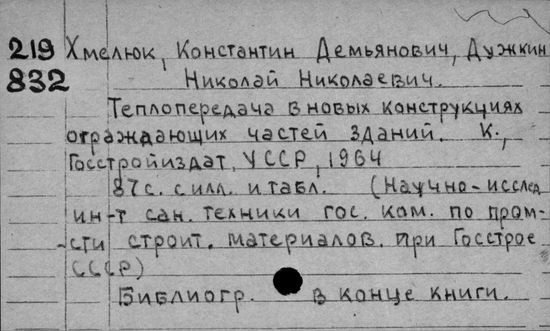 219 Хмелюк, Константин Демьянович, Дужкин
832 Николай Николаевич.
Теплопередача в новых конструкциях
ограждающих частей зданий. К.,
Госстройиздат, УССР, 1964
87с. с илл. и табл. (Научно-исслед
ин-т сан. техники гос. ком. по пром-
сти строит. материалов. при Госстрое
СССР)
Библиогр. в конце книги.